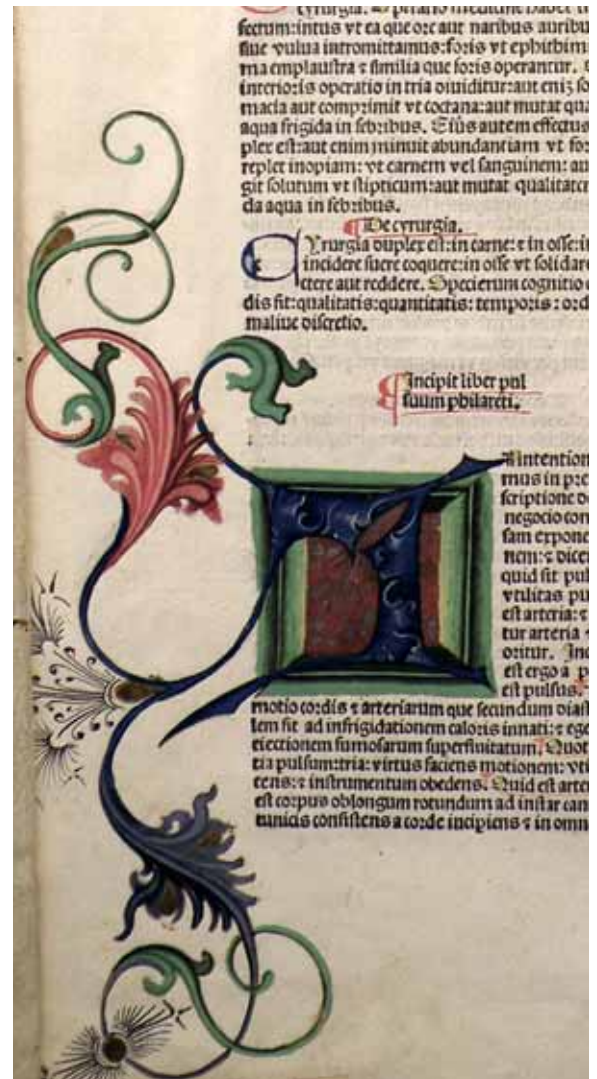 cyrurgia.
sectum:intus vt ea que ore aut naribus auribu
siue vulua intromittamus:foris vt ephithim
ma emplaustra ⁊ similia que foris operantur.
interioris operatio in tria diuiditur:aut eniʒ so
macia aut comprimit vt coctana:aut mutat qua
aqua frigida in febribus. Eius autem effectus
plex est:aut enim minuit abundantiam vt for
replet inopiam: vt carnem vel sanguinem: au
git solutum vt stipticum:aut mutat qualitatem
da aqua in febribus.
¶De cyrurgia.
CYrurgia duplex est:in carne: ⁊ in osse:in
incidere suere coquere:in osse vt solidare
ctere aut reddere. Specierum cognitio
dis fit:qualitatis:quantitatis: temporis : ord
maliue discretio.
¶Incipit liber pul
suum philareti.
Intention
mus in pre
scriptione de
negocio con
sam expone
nem:⁊ dicem
quid sit pul
vtilitas pu
est arteria:⁊
tur arteria ⁊
oritur. Inc
est ergo a p
est pulsus.
motio cordis ⁊ arteriarum que secundum diast
lem fit ad infrigidationem caloris innati:⁊ ege
eiectionem fumosarum superfluitatum. Quot
tia pulsum:tria: virtus faciens motionem: vti
tens:⁊ instrumentum obediens. Quid est arter
est corpus oblongum rotundum ad instar can
tunicis consistens a corde incipiens ⁊ in omn